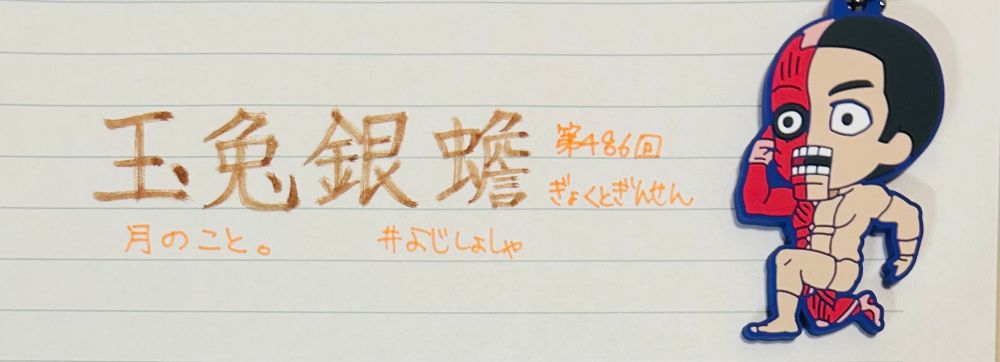 玉兔銀蟾
第486回
ぎょくとぎんせん
月のこと。
#よじしょしゃ